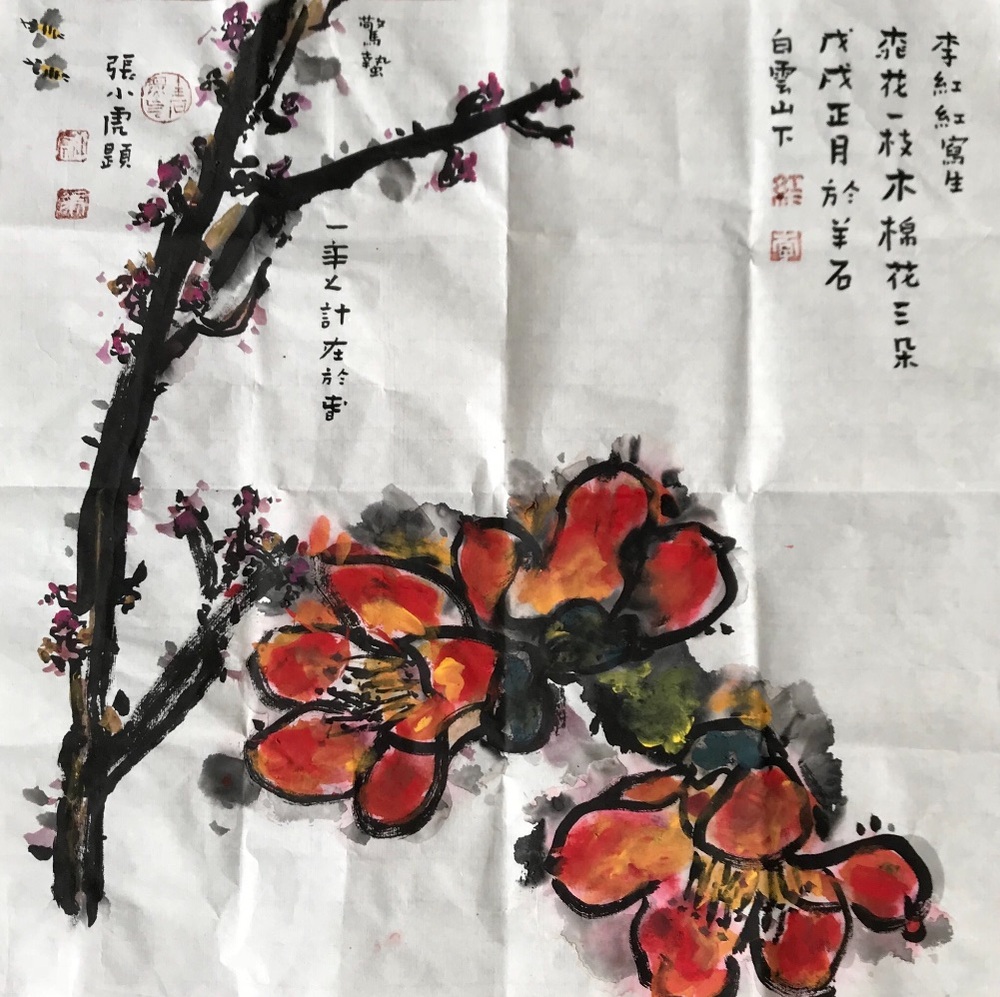 李紅紅寫生
桃花一枝木棉花三朵
戊戌正月於羊石
白雲山下
驚蟄
一年之計在於春
張小虎題